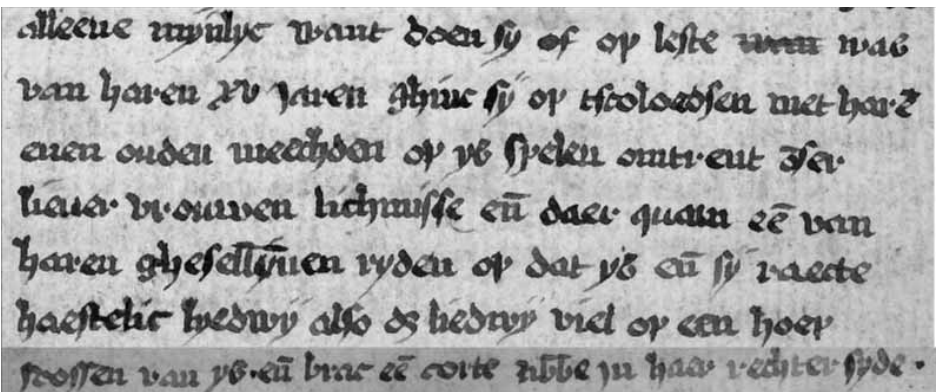 alleene mynlyc want doen sy of op leste wan was
van haren xv jaren ghinc sy op tscoloedsen met harē
euen ouden meechden op ys spelen omtrent onser
lieuer vrouwen lichmisse eñ daer quam eē van
haren ghesellȳnen ryden op dat ys eñ sy raecte
haestelic lyedwy also dz liedwy viel op een hoep
scossen van ys. eñ brac eē corte ribbe in haer rechter syde.